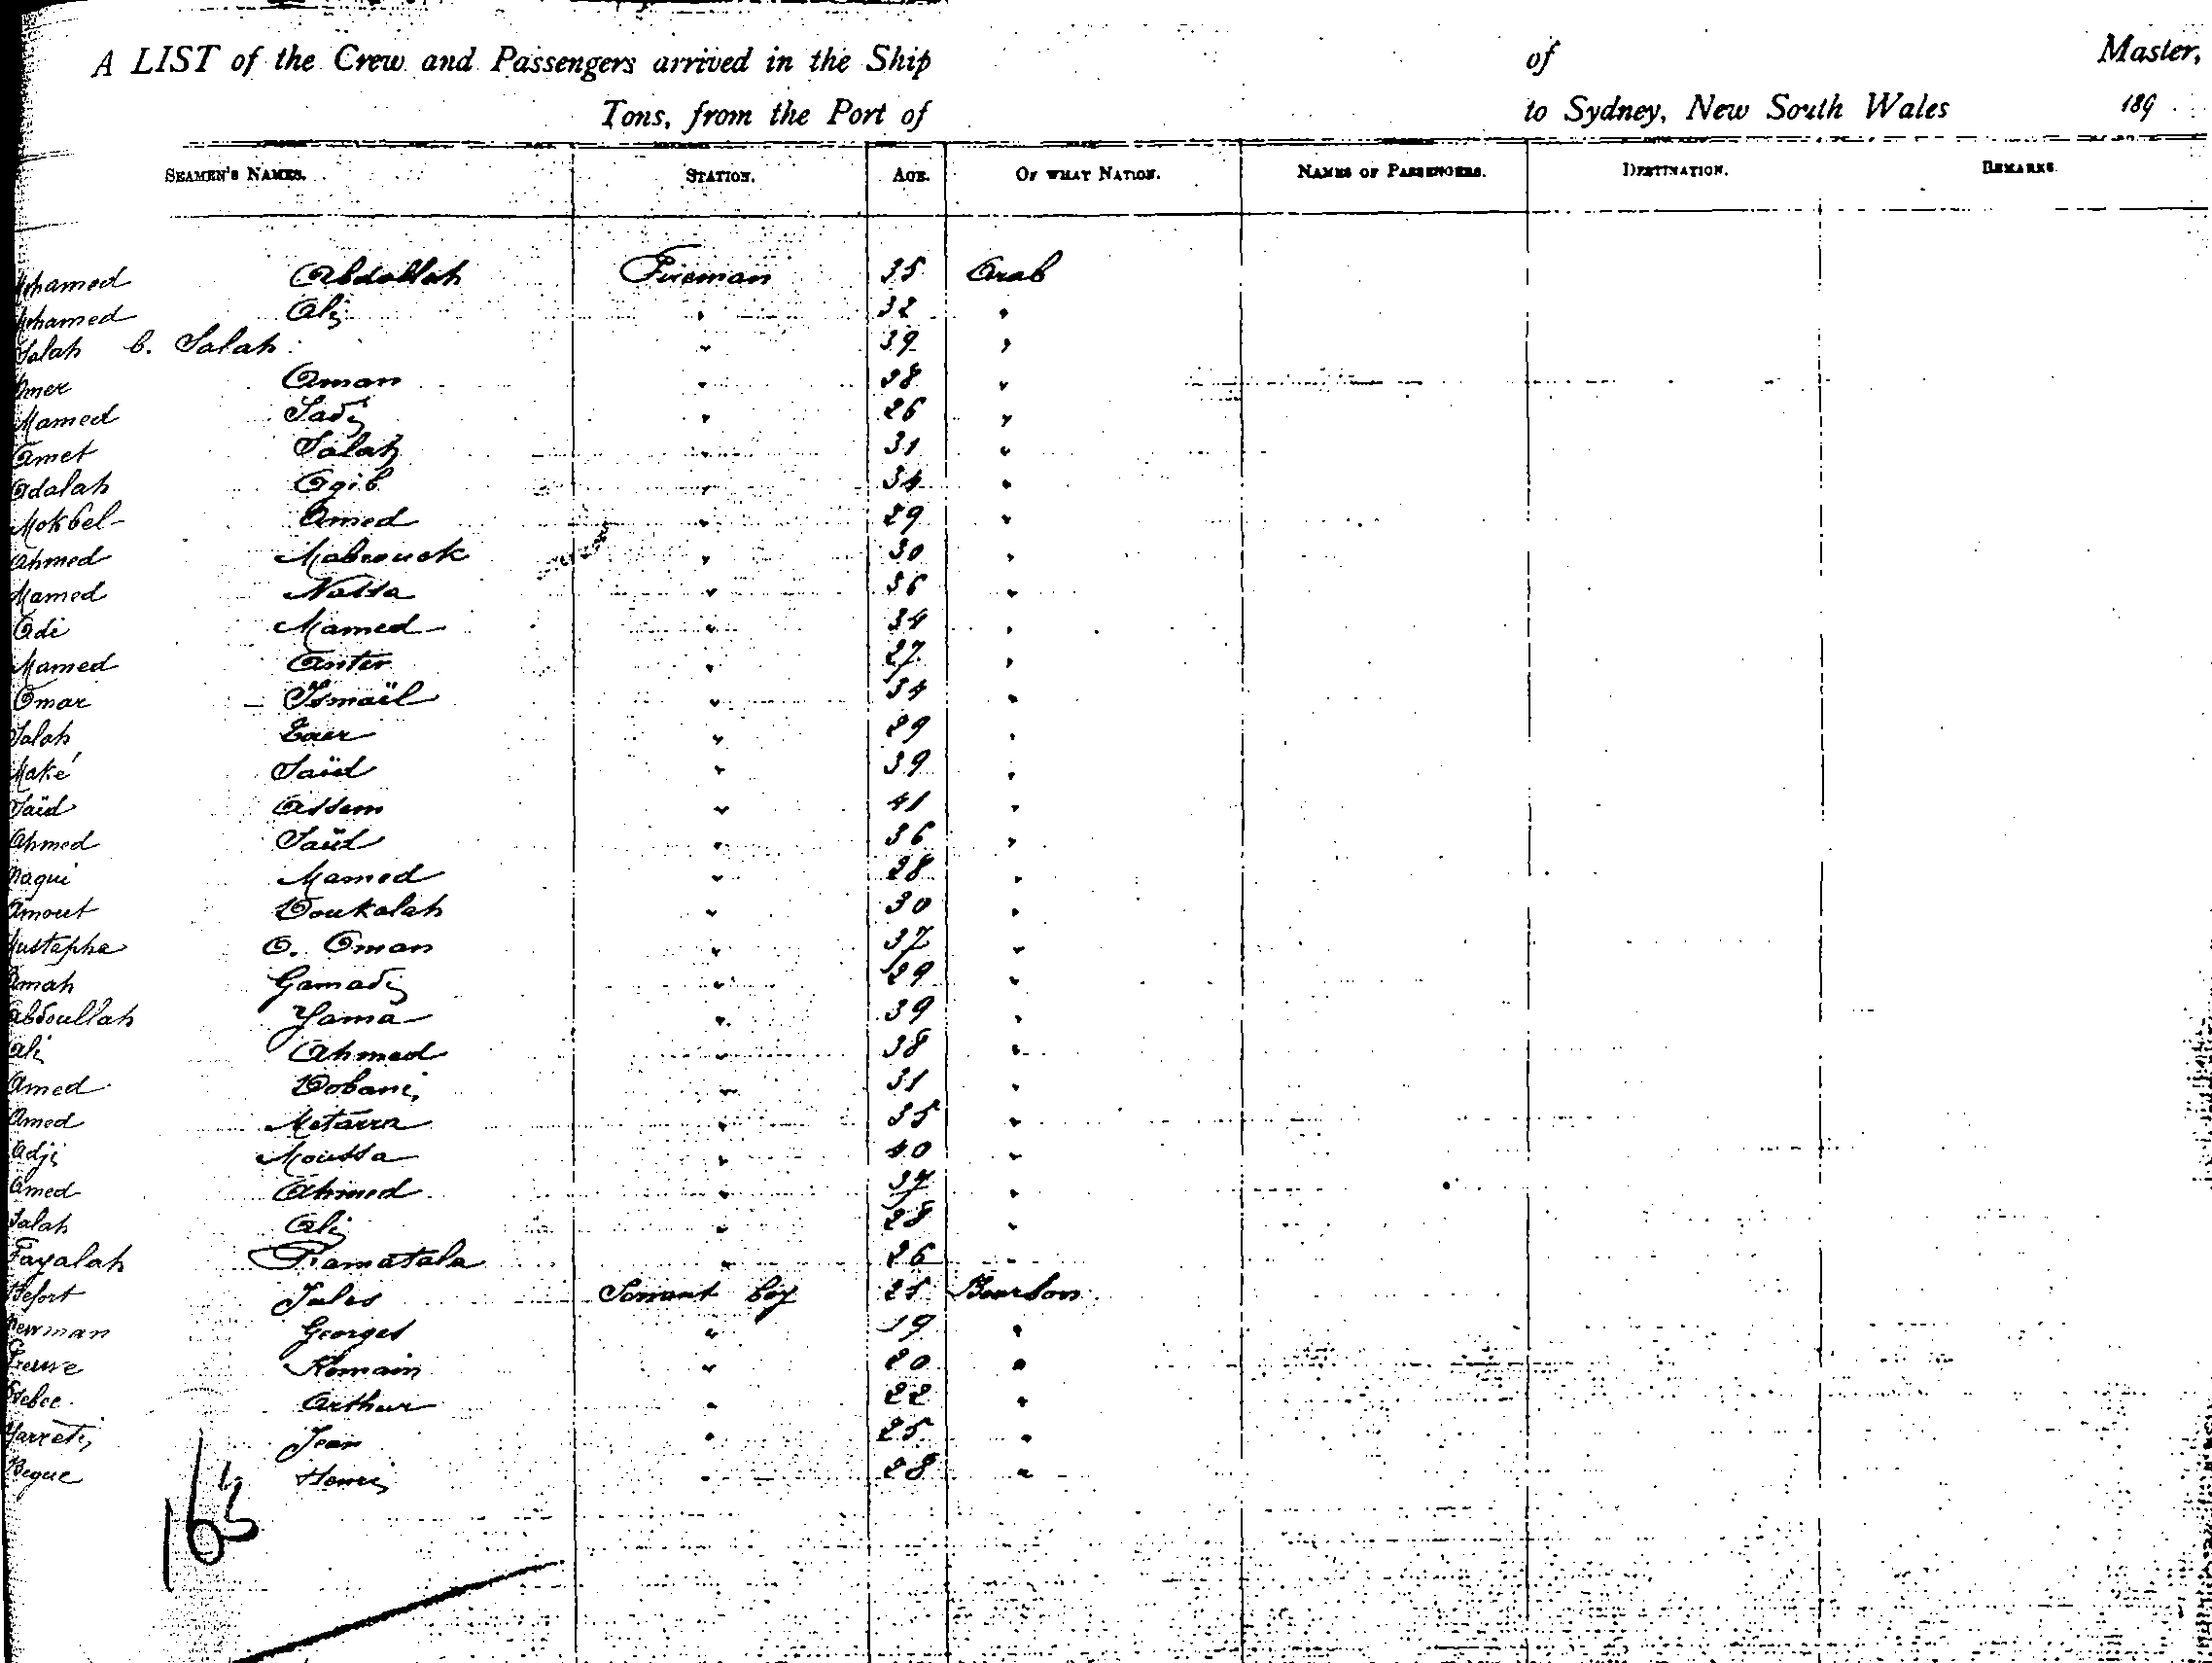 A LIST of the Crew and Passengers arrived in the Ship of Master,
Tons, from the Port of to Sydney, New South Wales 189
SEAMEN'S NAMES. STATION. AGE. OF WHAT NATION. NAMES OF PASSENGERS. DESTINATION. REMARKS.
Mohamed Abdallah Fireman 35 Arab
Mohamed Ali " 32 "
Salah b. Salah " 39 "
Omer Aman " 38 "
Mamed Sadi " 26 "
Amet Salah " 31 "
Adalah Agib " 34 "
Mokbel Amed " 29 "
Ahmed Mabrouck " 30 "
Mamed Nassa " 36 "
Adi Mamed " 34 "
Mamed Anter " 27 "
Omar Ismaïl " 34 "
Salah " 29 "
Maké Saïd " 39 "
Saïd Assem " 41 "
Ahmed Saïd " 36 "
Naqui Mamed " 28 "
Amout Doukalah " 30 "
Mustapha O. Oman " 37 "
Amah Gamadi " 29 "
Abdoullah Yama " 39 "
Ali Ahmed " 38 "
Amed Dobani " 31 "
Amed " 35 "
Adji Moussa " 40 "
Amed Ahmed " 37 "
Salah Ali " 28 "
Fayalah Ramatala " 26 "
Befort Jules Servant boy 25 Bourbon
Newman Georges " 19 "
Romain " 20 "
Arthur " 22 "
Jean " 25 "
Begue Henri " 28 "
163